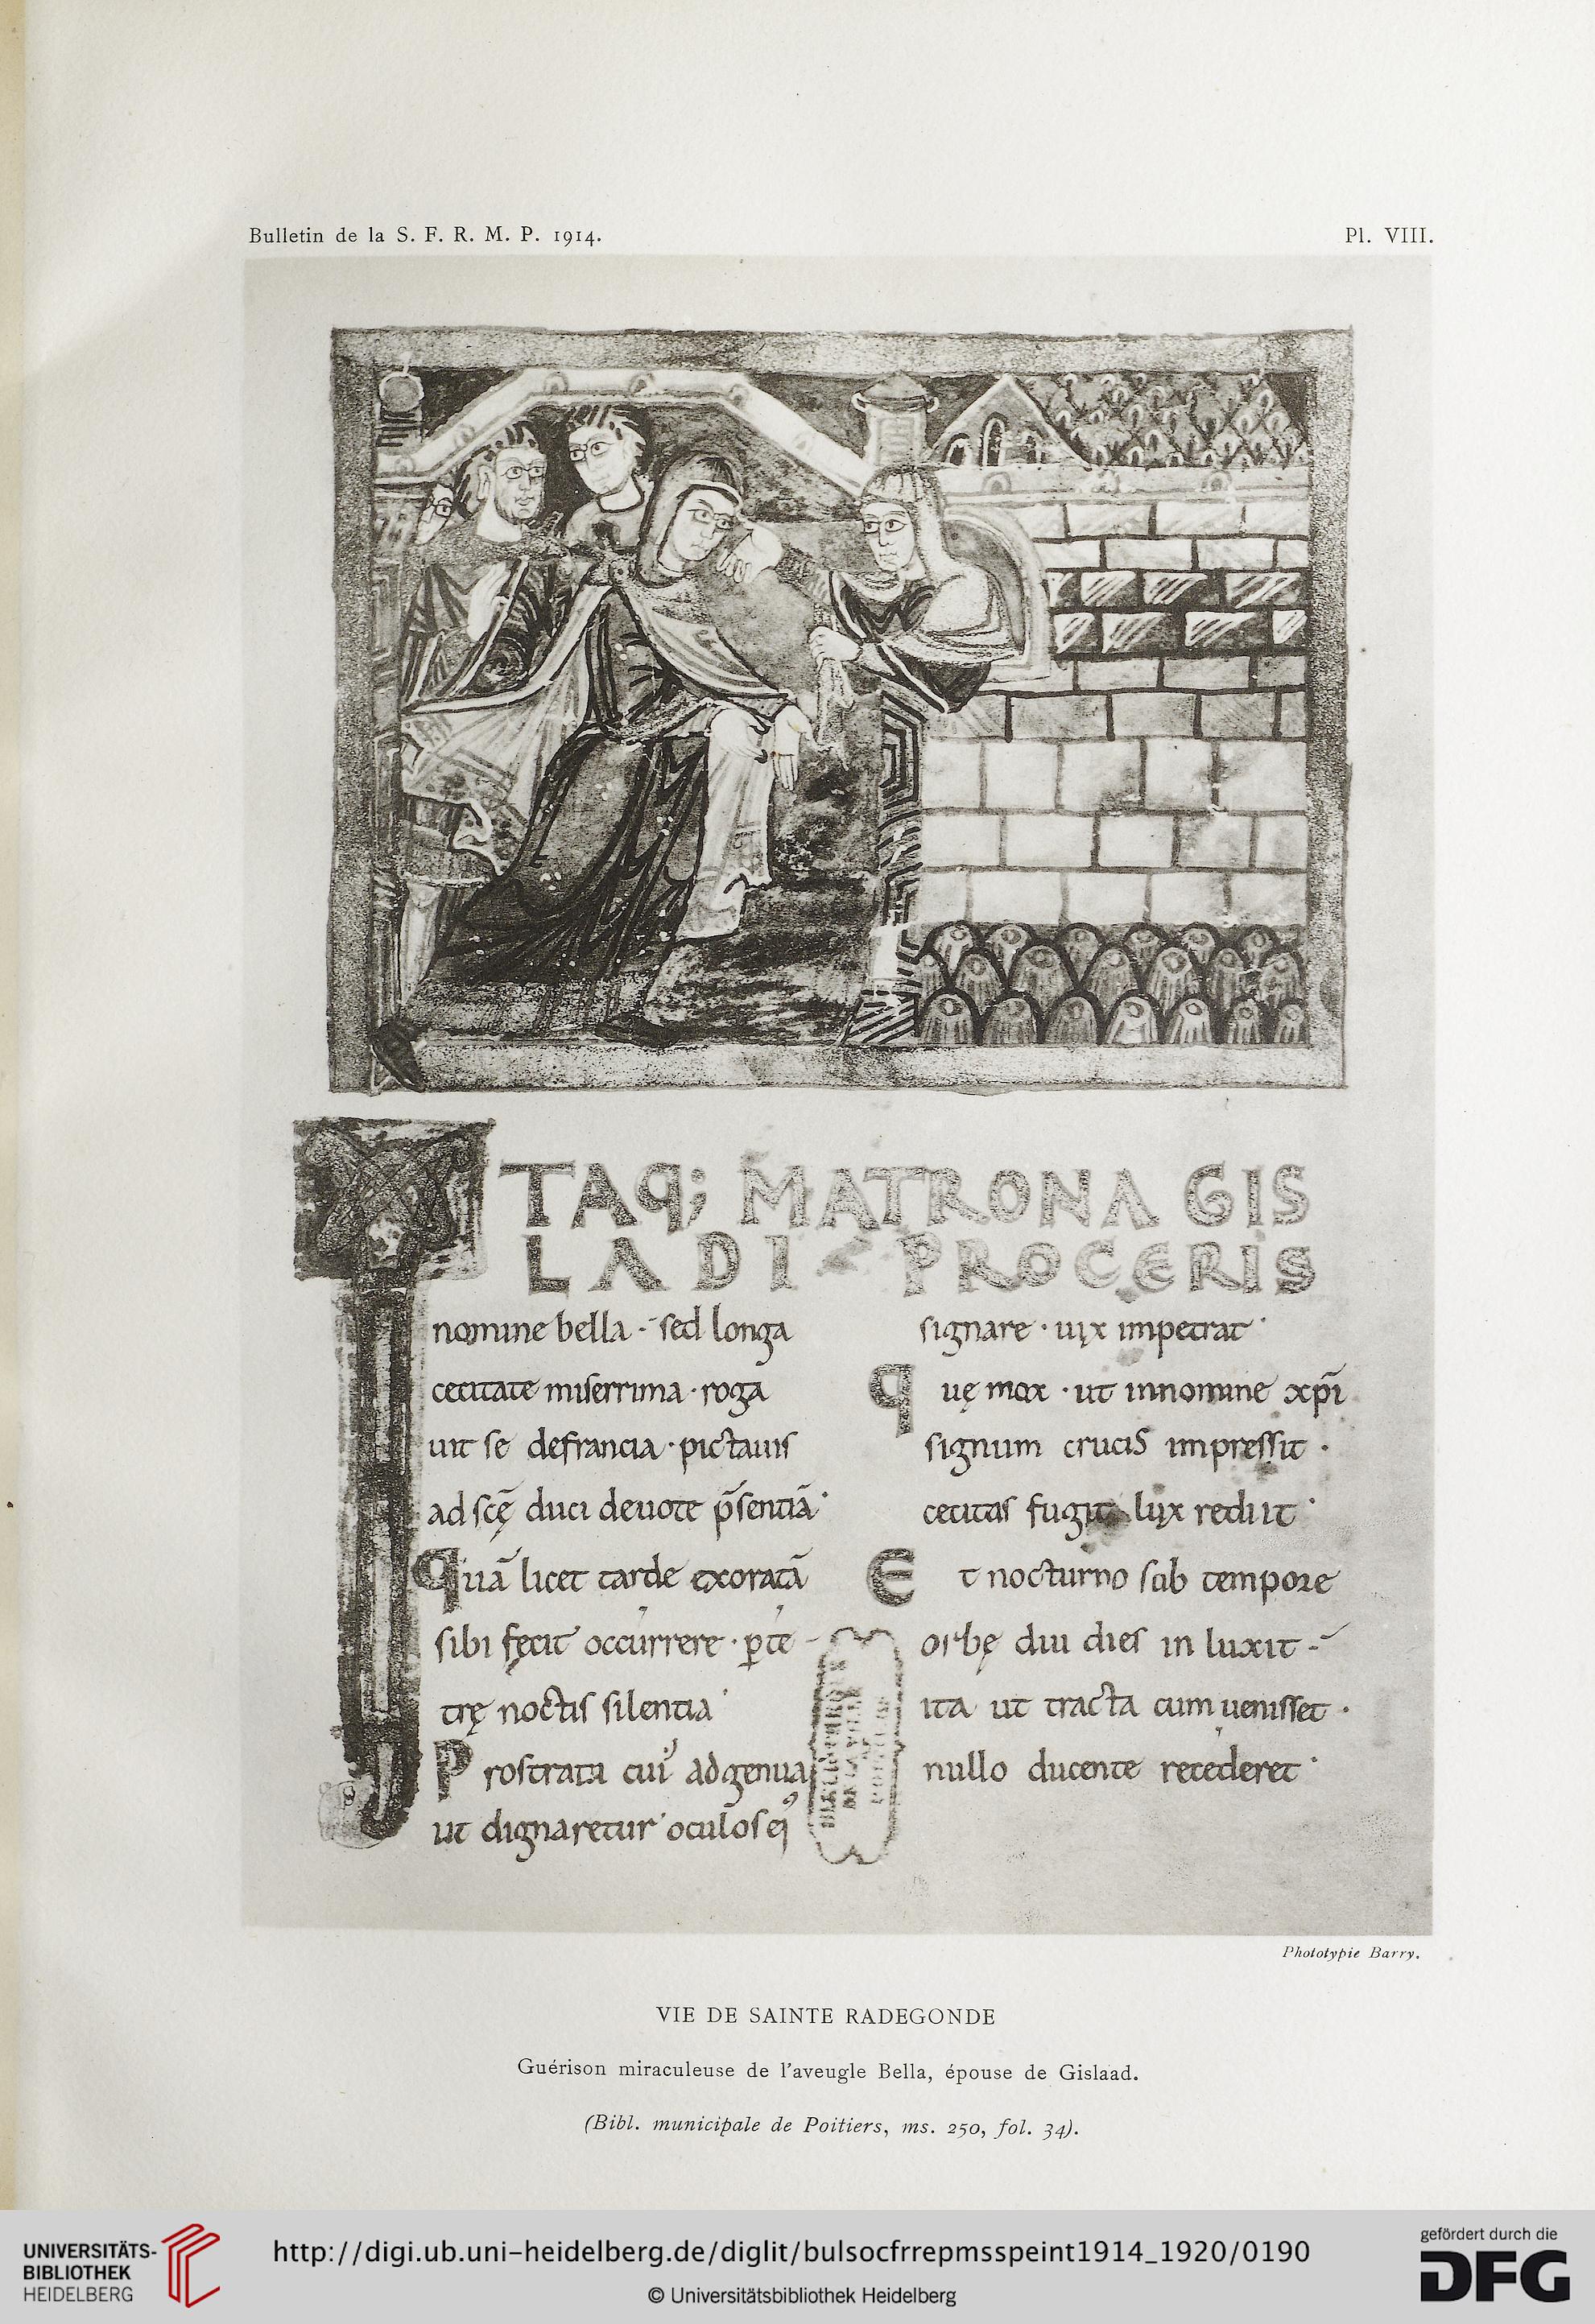 Bulletin de la S. F. R. M. P. 1914.
Pl. VIII.
ITAQ; MATRONA GIS
LADI PROCERIS
nomine bella · sed longa
cecitate miserrima · roga
uit se defrancia · pictauis
ad scę̄ duci deuote p̄sentiā·
Quā licet tarde exoratā
sibi fęcit occurrere · p te
trę noctis silentia
Prostrata cui᾽ ad genua
ut dignaretur oculos ei᾽
signare · uix impetrat·
quę mox · ut innomine xp̄i
signum crucis impressit ·
cecitas fugit lux rediit ·
Et nocturno sub tempore
orbę diu dies in luxit
ita ut tracta cum uenisset ·
nullo ducente recederet ·
Phototypie Barry.
VIE DE SAINTE RADEGONDE
Guérison miraculeuse de l'aveugle Bella, épouse de Gislaad.
(Bibl. municipale de Poitiers, ms. 250, fol. 34).
UNIVERSITÄTS-
BIBLIOTHEK
HEIDELBERG
http://digi.ub.uni-heidelberg.de/diglit/bulsocfrrepmsspeint1914_1920/0190
© Universitätsbibliothek Heidelberg
gefördert durch die
DFG